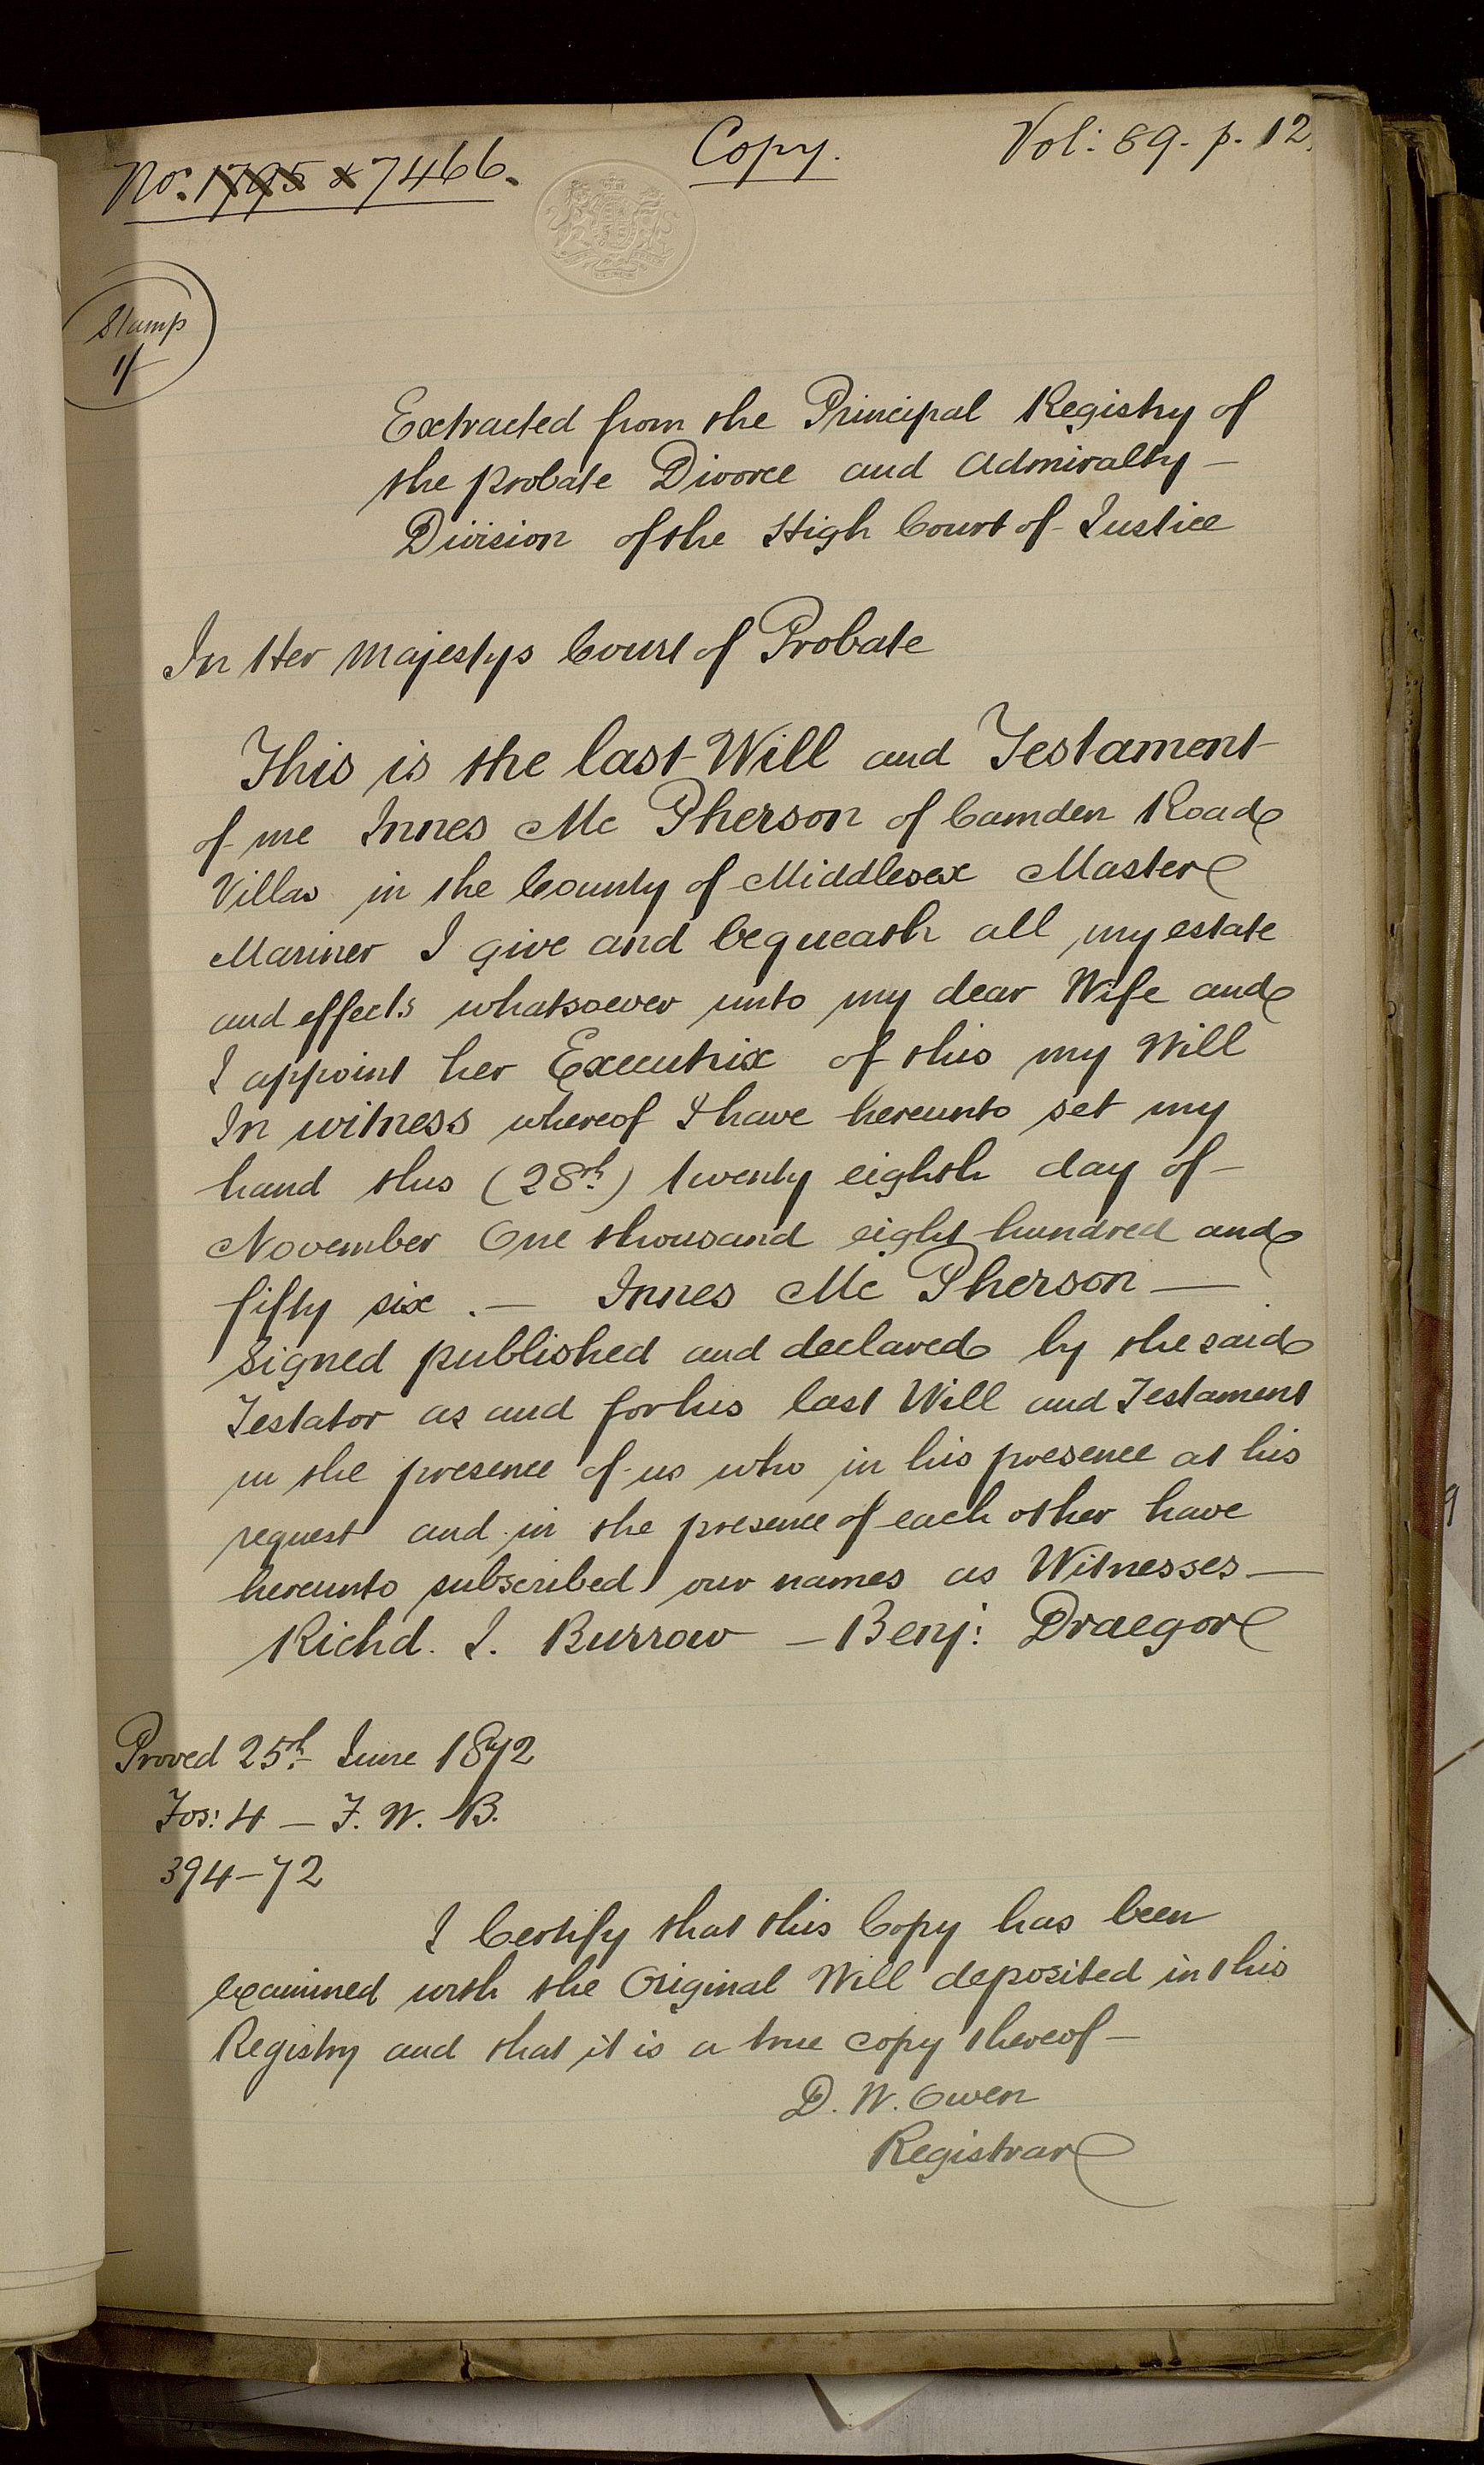 No. 1795 & 7466.
Copy.
Vol: 89. p. 12.
Stamp
1/
Extracted from the Principal Registry of
the Probate Divorce and Admiralty –
Division of the High Court of Justice
In Her Majestys Court of Probate
This is the last Will and Testament
of me Innes Mc Pherson of Camden Road
Villas in the County of Middlesex Master
Mariner I give and bequeath all my estate
and effects whatsoever unto my dear Wife and
I appoint her Executrix of this my Will
In witness whereof I have hereunto set my
hand this (28th) twenty eighth day of –
November One thousand eight hundred and
fifty six . – Innes Mc Pherson –
Signed published and declared by the said
Testator as and for his last Will and Testament
in the presence of us who in his presence at his
request and in the presence of each other have
hereunto subscribed our names as Witnesses –
Richd. J. Burrow – Benj: Draegor
Proved 25th June 1872
Fos: 4 – F. W. B.
394–72
I Certify that this Copy has been
examined with the Original Will deposited in this
Registry and that it is a true copy thereof –
D. W. Owen
Registrar